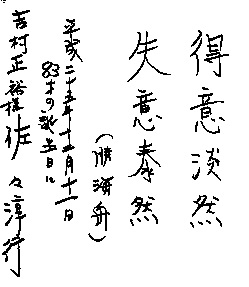 得意淡然
失意泰然
(勝海舟)
平成二十五年十二月十一日
の誕生日に
吉村正裕様 佐々淳行